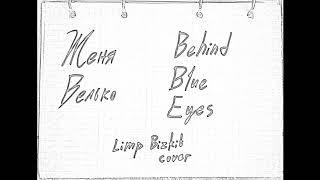 Женя
Велько
Behind
Blue
Eyes
Limp Bizkit
cover